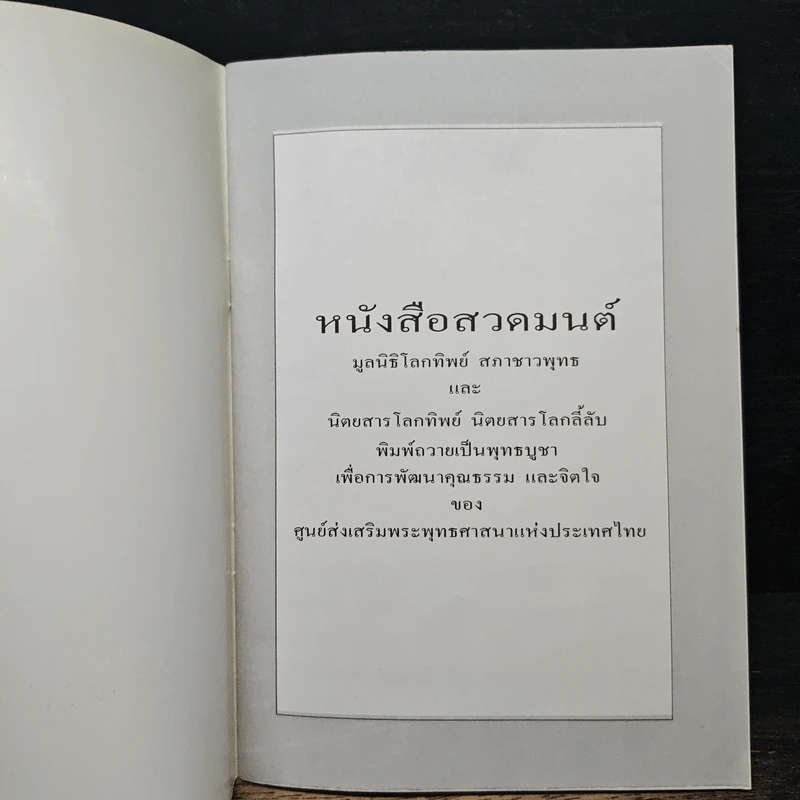 หนังสือสวดมนต์
มูลนิธิโลกทิพย์ สภาชาวพุทธ
และ
นิตยสารโลกทิพย์ นิตยสารโลกลี้ลับ
พิมพ์ถวายเป็นพุทธบูชา
เพื่อการพัฒนาคุณธรรม และจิตใจ
ของ
ศูนย์ส่งเสริมพระพุทธศาสนาแห่งประเทศไทย